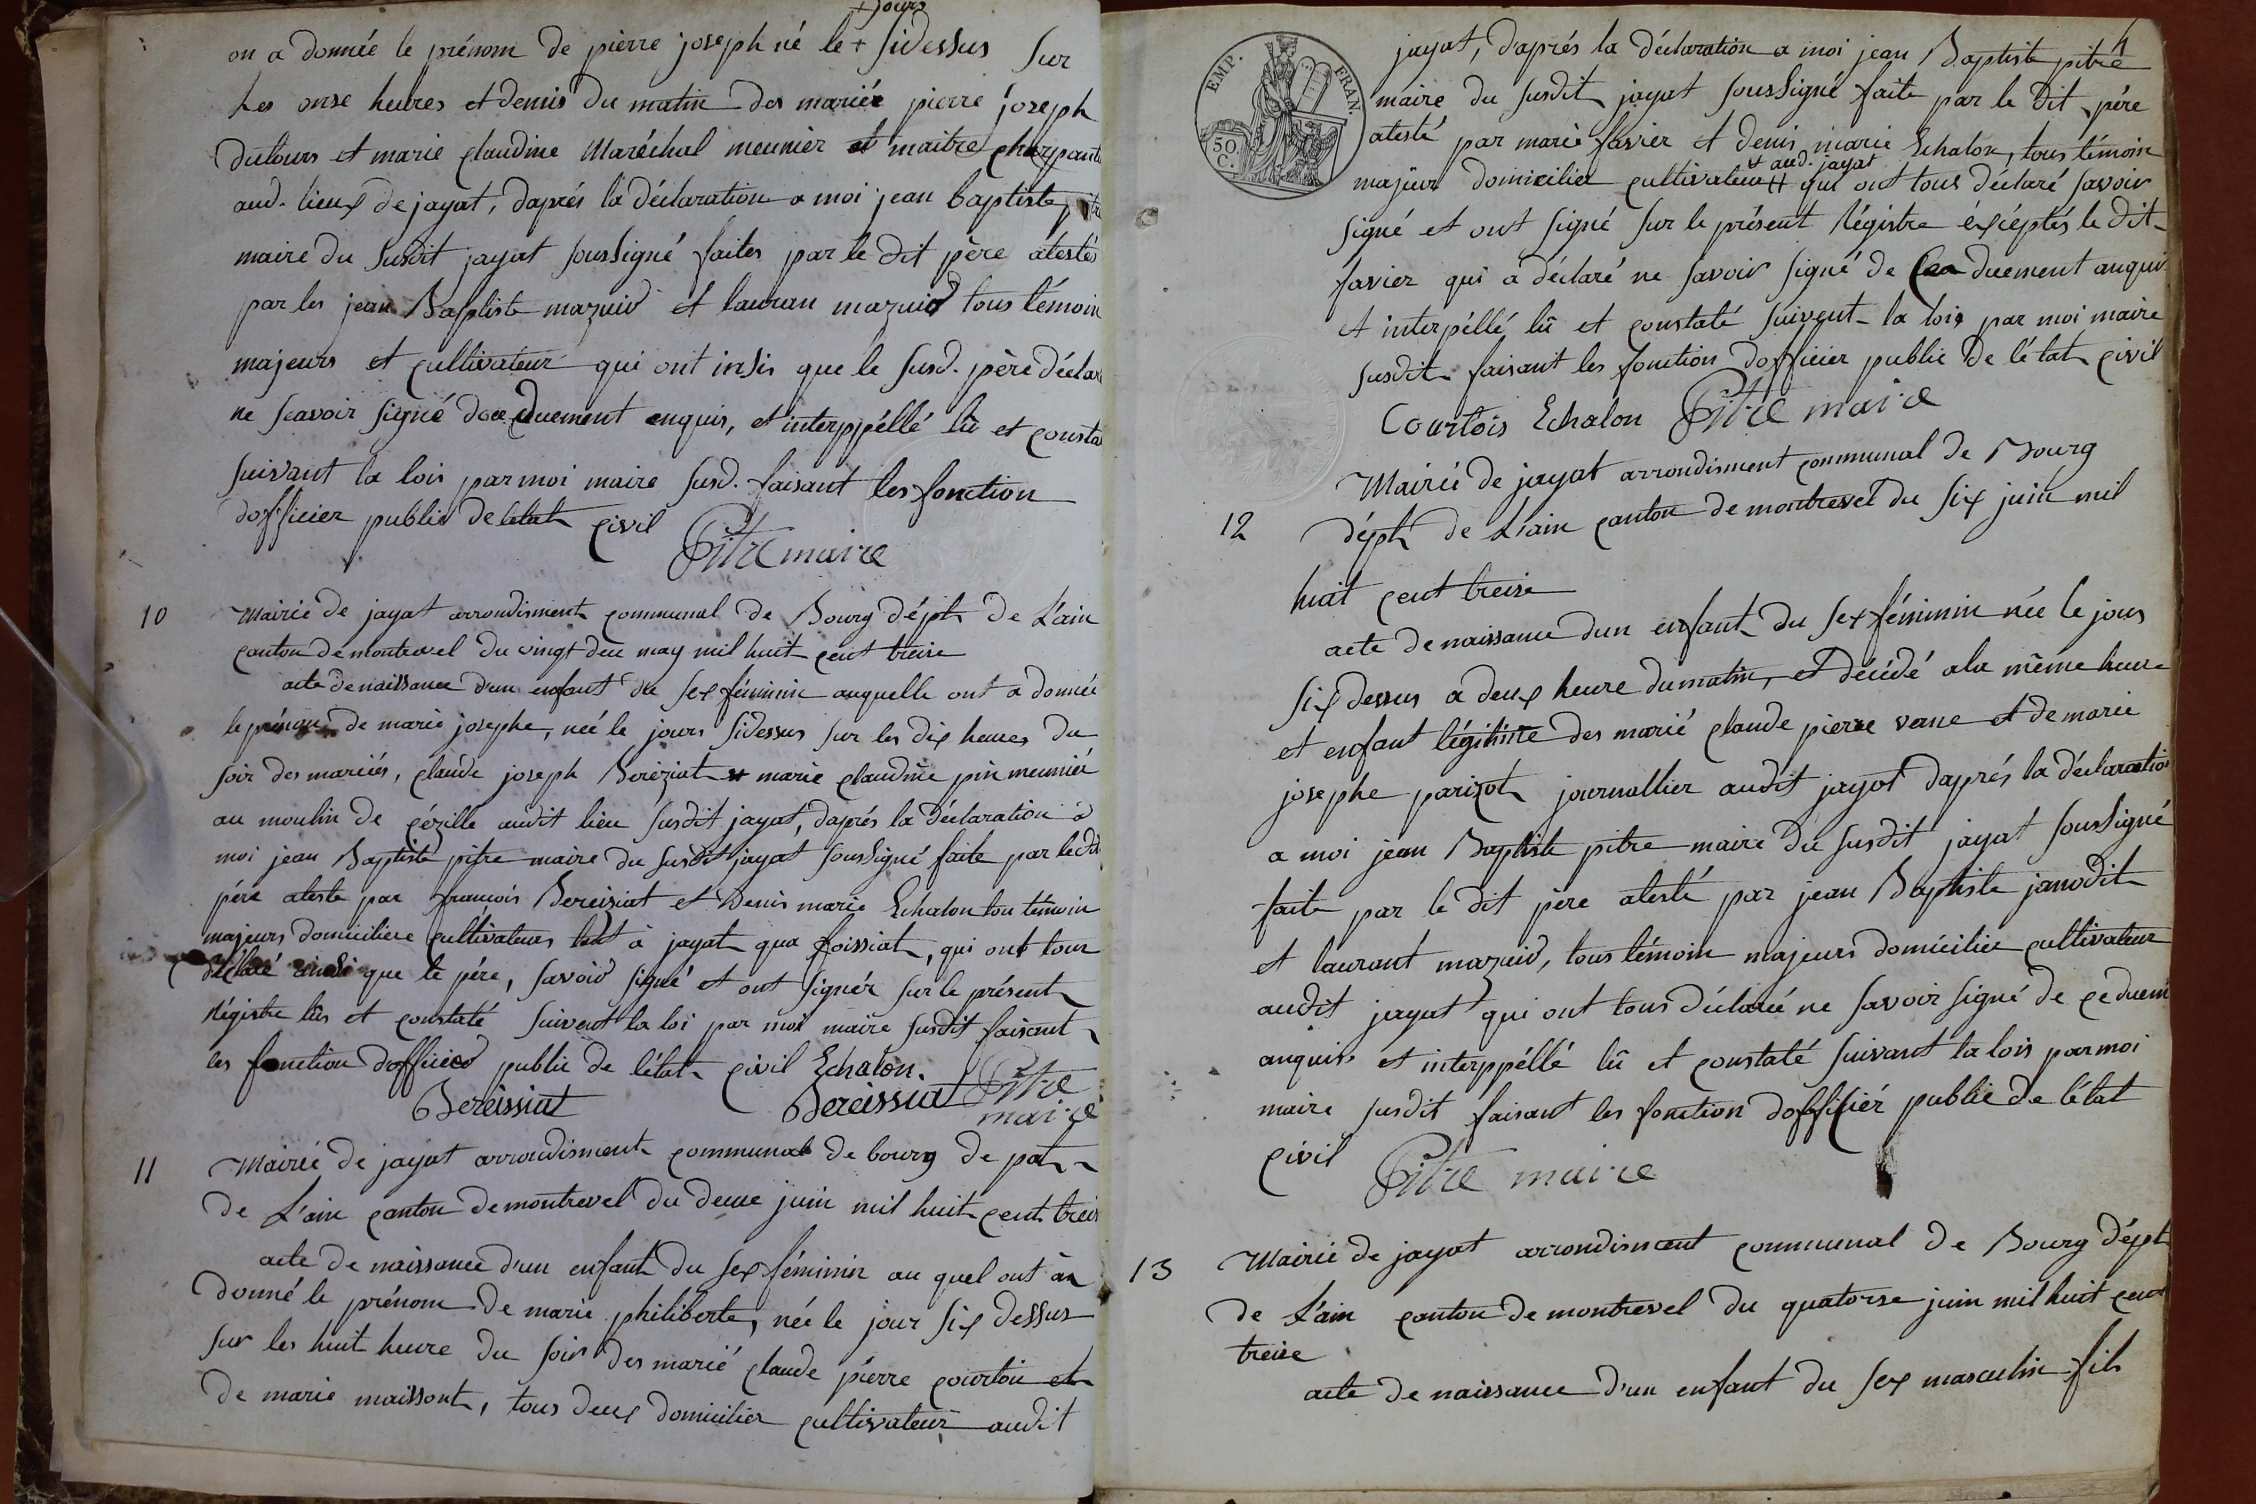 + jours
on a donnée le prénom de pierre joseph né le + sidessus sur
les onse heures et demis du matin des mariée pierre joseph
dutours et marie claudine Maréchal meunier et maitre charpanti
aud. lieux de jayat, daprés la déclaration a moi jean baptiste pitre
maire du susdit jayat soussigné faites par le dit père atestés
par les jean Baptiste mazuid et lauran mazuid tous témoin
majeurs et cultivateur qui ont insis que le susd. père déclaré
ne scavoir signé de ce duement enquis, et interppéllé lû et consta
suivant la lois par moi maire susd. faisant les fonction
dofficier public de létat civil Pitre maire
10 Mairie de jayat arrondisment communal de Bourg dépt de L'ain
canton de montrevel du vingt deu may mil huit cent treise
acte de naissance d'un enfant du sex féminin auquelle ont a donnée
le prénom de marie josephe, neé le jours sidessus sur les dix heures du
soir des mariés, claude joseph Bereziat et marie claudine pin meunier
au moulin de cézille audit lieu susdit jayat, daprés la déclaration à
moi jean Baptiste pitre maire du susdit jayat soussigné faite par ledit
pére ateste par françois Bereiziat et Denis marie Echalon tou témoin
majeurs domicilière cultivateurs tant à jayat qua foissiat, qui ont tour
déclaré ainsi que le pére, savoir signé et ont signér sur le présent
régistre lûs et constaté suivent la loi par moi maire susdit faisant
les fonction dofficier public de létat civil Echalon.
Bereissiat Bereissiat Pitre
maire
11 Mairie de jayat arrondisment communal de bourg de pat
de L'ain canton de montrevel du deuse juin mil huit cent treis
acte de naissance d'un enfant du sex féminin au quel ont àn
donné le prénom de marie philiberte, née le jour six dessus
sur les huit heure du soir des marié claude piérre courtoi et
de marie maissont, tous deux domicilier cultivateur audit
4
jayat, d'aprés la déclaration a moi jean Baptiste pitre
maire du susdit jayat soussigné faite par le dit pére
atesté par marie favier et denis marie Echalon, tous témoin
+ aud. jayat
majeur domicilier cultivateur + qui ont tous déclaré savoir
signé et ont signé sur le présent régistre éxcéptés le dit
favier qui a déclaré ne savoir signé de ce duement anquis
et interpéllé lû et constaté suivent la lois par moi maire
susdit faisant les fonction dofficier public de létat civil
Courtois Echalon Pitre maire
EMP. FRAN.
50 C.
Mairie de jayat arrondisment communal de Bourg
12 dépt de L'ain canton de montrevel du six juin mil
huit cent treise
acte de naissance dun enfant du sex féminin née le jous
six dessus a deux heure du matin, et décédé ala même heure
et enfant légitime des marié claude pierre verne et de marie
josephe parizot journallier audit jayat daprés la déclaration
a moi jean Baptiste pitre maire du susdit jayat soussigné
faite par le dit père atesté par jean Baptiste janodit
et laurant mazuid, tous témoin majeurs domicilier cultivateur
audit jayat qui ont tous déclaré ne savoir signé de ce duem
anquis et interppéllé lû et constaté suivant la lois par moi
maire susdit faisant les fonction dofficiér public de létat
civil Pitre maire
13 Mairie de jayat arrondisment communal de Bourg dépt
de L'ain canton de montrevel du quatorse juin mil huit cent
treise
acte de naissance d'un enfant du sex masculin fils